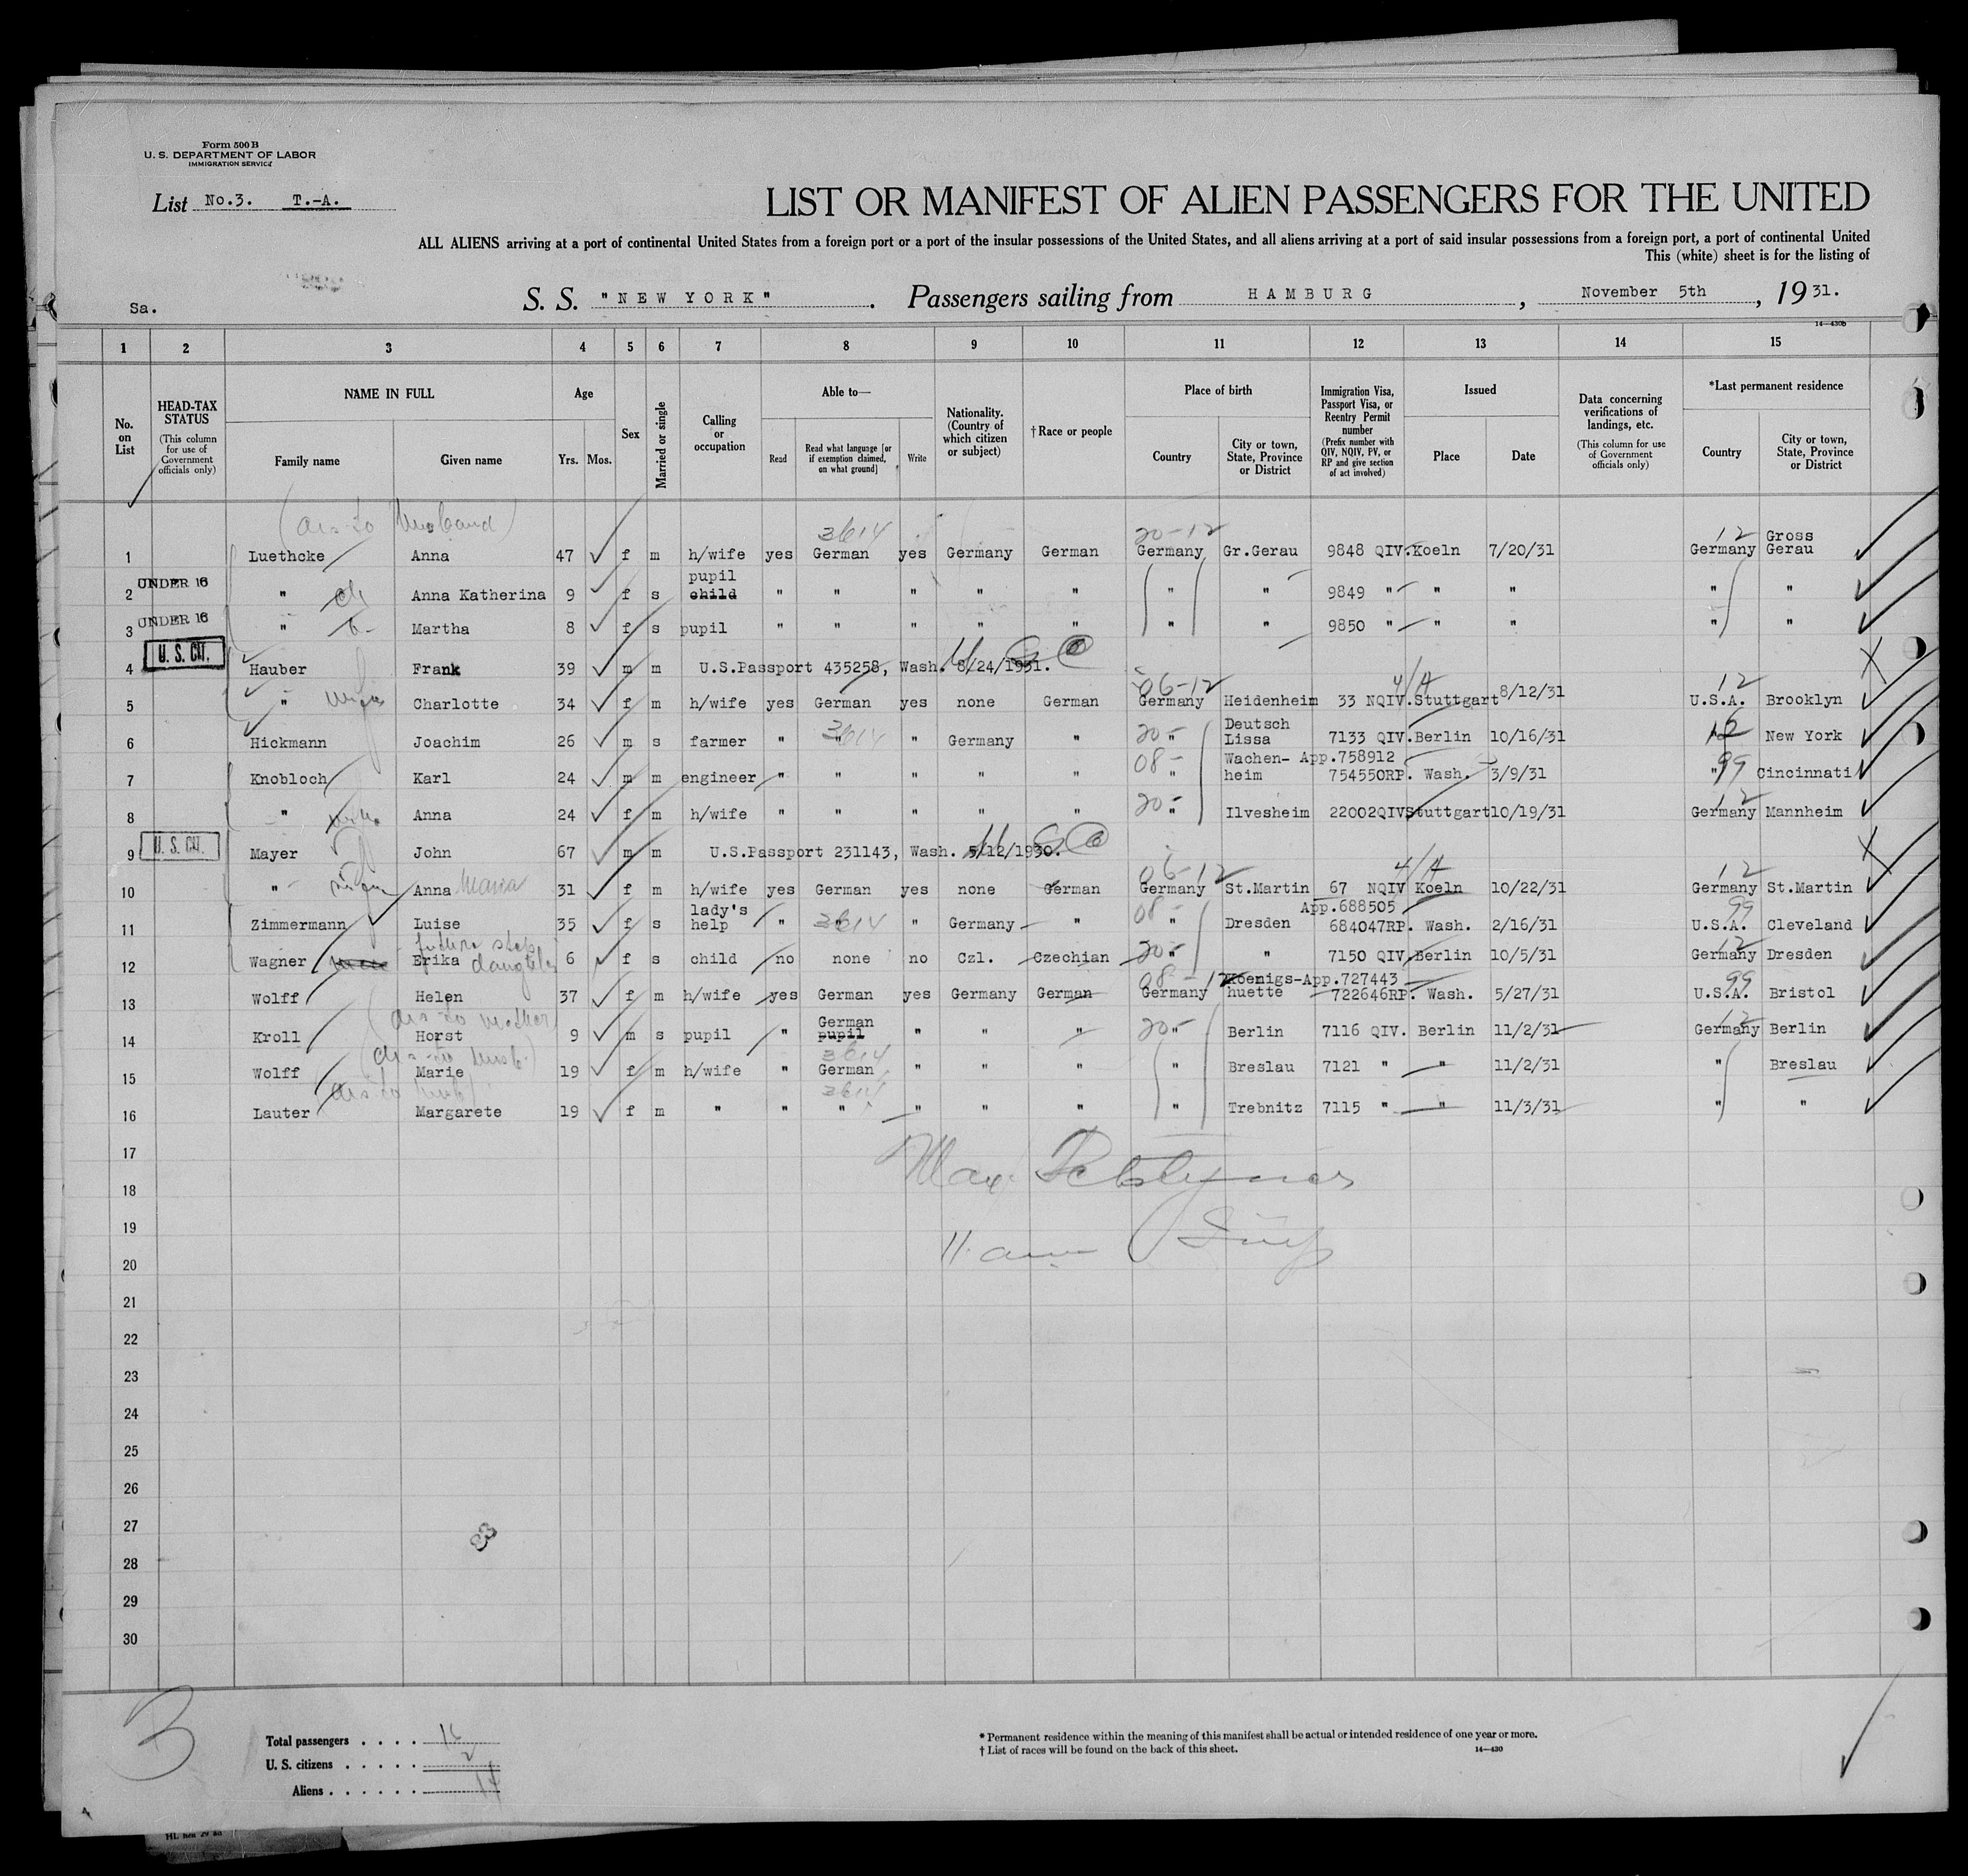 Form 500 B
U. S. DEPARTMENT OF LABOR
IMMIGRATION SERVICE
List No.3. T.-A.
LIST OR MANIFEST OF ALIEN PASSENGERS FOR THE UNITED
ALL ALIENS arriving at a port of continental United States from a foreign port or a port of the insular possessions of the United States, and all aliens arriving at a port of said insular possessions from a foreign port, a port of continental United
This (white) sheet is for the listing of
Sa. S. S. "NEW YORK". Passengers sailing from HAMBURG, November 5th, 1931.
14—430b
1 2 3 4 5 6 7 8 9 10 11 12 13 14 15
No. on List
HEAD-TAX STATUS (This column for use of Government officials only)
NAME IN FULL Family name Given name
Age Yrs. Mos.
Sex
Married or single
Calling or occupation
Able to— Read Read what language [or if exemption claimed, on what ground] Write
Nationality. (Country of which citizen or subject)
†Race or people
Place of birth Country City or town, State, Province or District
Immigration Visa, Passport Visa, or Reentry Permit number (Prefix number with QIV, NQIV, PV, or RP and give section of act involved)
Issued Place Date
Data concerning verifications of landings, etc. (This column for use of Government officials only)
*Last permanent residence Country City or town, State, Province or District
(dis to husband) 3614 20-12 12
1 Luethcke Anna 47 f m h/wife yes German yes Germany German Germany Gr.Gerau 9848 QIV. Koeln 7/20/31 Germany Gross Gerau
UNDER 16
2 " ch Anna Katherina 9 f s pupil child " " " " " " " 9849 " " " " "
UNDER 16
3 " Martha 8 f s pupil " " " " " " " 9850 " " " " "
U. S. CIT.
4 Hauber Frank 39 m m U.S.Passport 435258, Wash. 8/24/1931.
06-12 4/A 12
5 " wife Charlotte 34 f m h/wife yes German yes none German Germany Heidenheim 33 NQIV. Stuttgart 8/12/31 U.S.A. Brooklyn
6 Hickmann Joachim 26 m s farmer " " 3614 " Germany " 20- " Deutsch Lissa 7133 QIV. Berlin 10/16/31 12 New York
7 Knobloch Karl 24 m m engineer " " " " " 08- " Wachen- heim App.758912 754550RP. Wash. 3/9/31 " 99 Cincinnati
8 " wife Anna 24 f m h/wife " " " " " 20- " Ilvesheim 22002QIV Stuttgart 10/19/31 Germany 12 Mannheim
U. S. CIT.
9 Mayer John 67 m m U.S.Passport 231143, Wash. 5/12/1930.
06-12 4/A 12
10 " Anna Maria 31 f m h/wife yes German yes none German Germany St.Martin 67 NQIV Koeln 10/22/31 Germany St.Martin
11 Zimmermann Luise 35 f s lady's help " " 3614 " Germany " 08- " Dresden App.688505 684047RP. Wash. 2/16/31 99 U.S.A. Cleveland
future step daughter
12 Wagner Erika 6 f s child no none no Czl. Czechian 20- " " 7150 QIV. Berlin 10/5/31 12 Germany Dresden
13 Wolff Helen 37 f m h/wife yes German yes Germany German 08-12 Germany Koenigs- huette App.727443 722646RP. Wash. 5/27/31 99 U.S.A. Bristol
(dis to mother)
14 Kroll Horst 9 m s pupil " German pupil " " " 20- " Berlin 7116 QIV. Berlin 11/2/31 12 Germany Berlin
(dis to husb.) 3614
15 Wolff Marie 19 f m h/wife " German " " " " Breslau 7121 " " 11/2/31 " Breslau
dis to husb 3614
16 Lauter Margarete 19 f m " " " " " " " Trebnitz 7115 " " 11/3/31 " "
17
18
19
20
21
22
23
24
25
26
27
28
29
30
3
Total passengers . . . . 16
U. S. citizens . . . . . 2
Aliens . . . . . . 14
* Permanent residence within the meaning of this manifest shall be actual or intended residence of one year or more.
† List of races will be found on the back of this sheet. 14—430